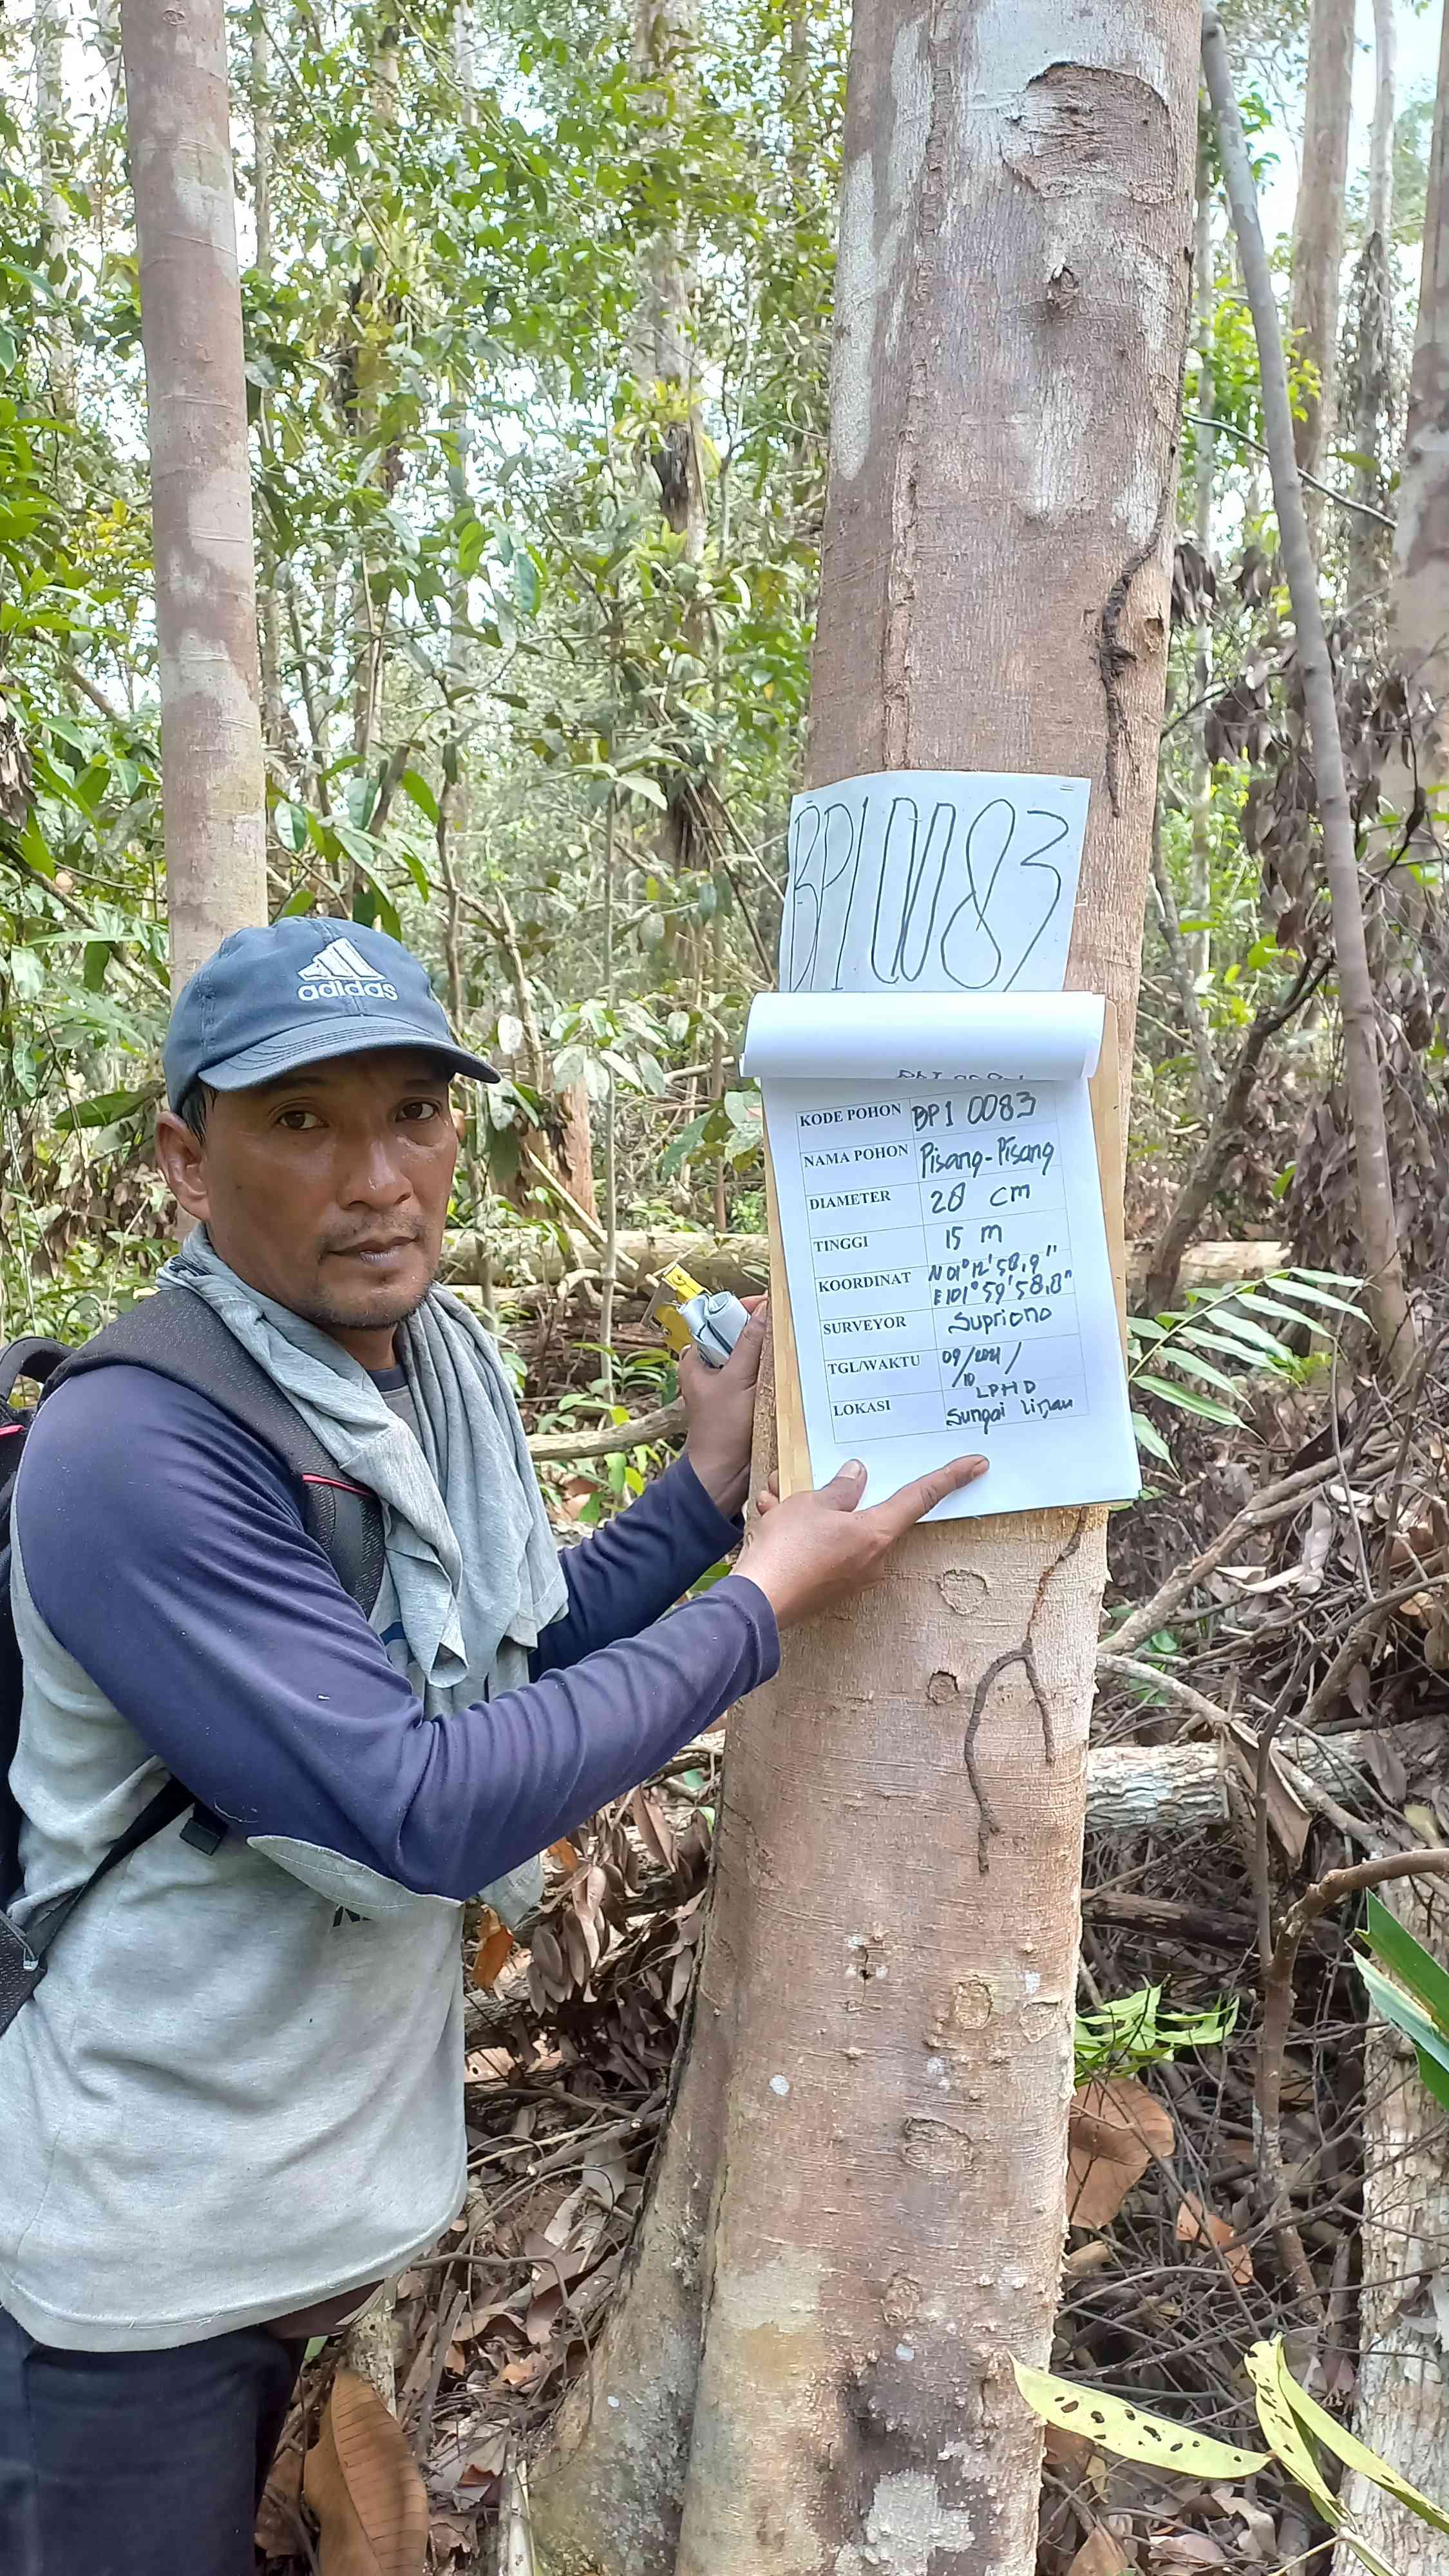 adidas
BP10083
KODE POHON BP1 0083
NAMA POHON Pisang-Pisang
DIAMETER 28 cm
TINGGI 15 m
KOORDINAT N 01° 12' 58,9"
E 101° 59' 58,8"
SURVEYOR Supriono
TGL/WAKTU 09/2021/
10
LPHD
LOKASI Sungai Linau